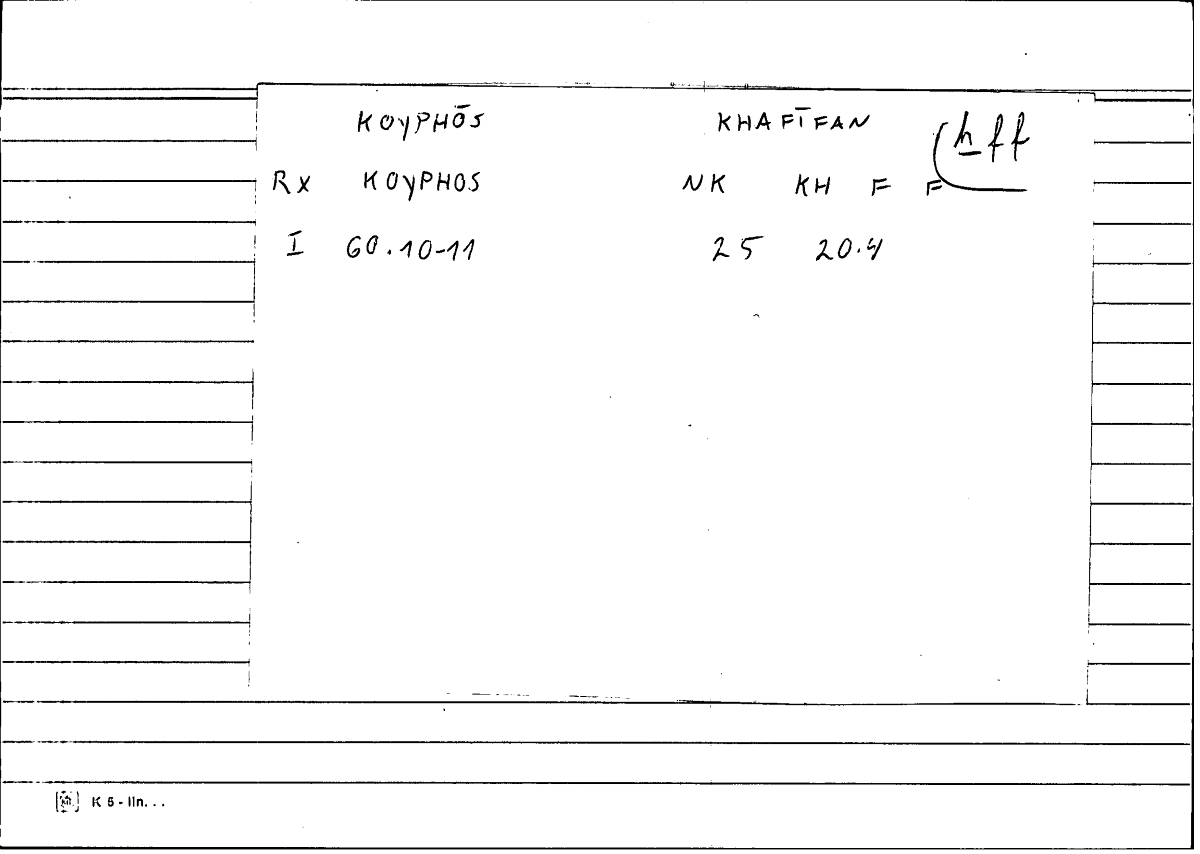 KOYPHŌS KHAFĪFAN ẖff
RX KOYPHOS NK KH F F
I 60.10-11 25 20.4
K 5 - lin...